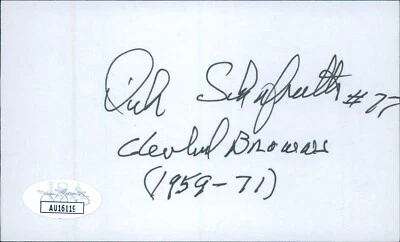 Dick Schafrath #77
Cleveland Browns
(1959-71)
JSA
AU16119